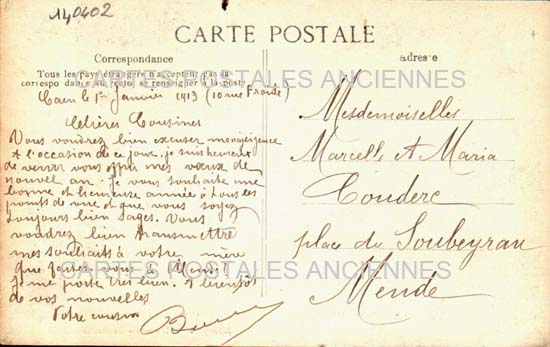 140402
CARTE POSTALE
Correspondance
adresse
Tous les pays étrangers n'acceptent pas la
correspondance au se renseigner à la poste
CARTES POSTALES ANCIENNES
Caen le 1er Janvier 1913 (10 rue Froide)
Chères Cousines
Vous voudrez bien excuser
A l'occasion de ce jour je suis heureux
de venir vous offrir mes vœux de
nouvel an. je vous souhaite une
bonne et heureuse année à tous les
points de vue et que vous soyez
toujours bien sages. Vous
voudrez bien transmettre
mes souhaits à votre mère
que faites vous à Mende
je me porte très bien. A bientôt
de vos nouvelles
Votre cousin
Mesdemoiselles
Marcelle et Maria
Couderc
place du Soubeyran
Mende
CARTES POSTALES ANCIENNES